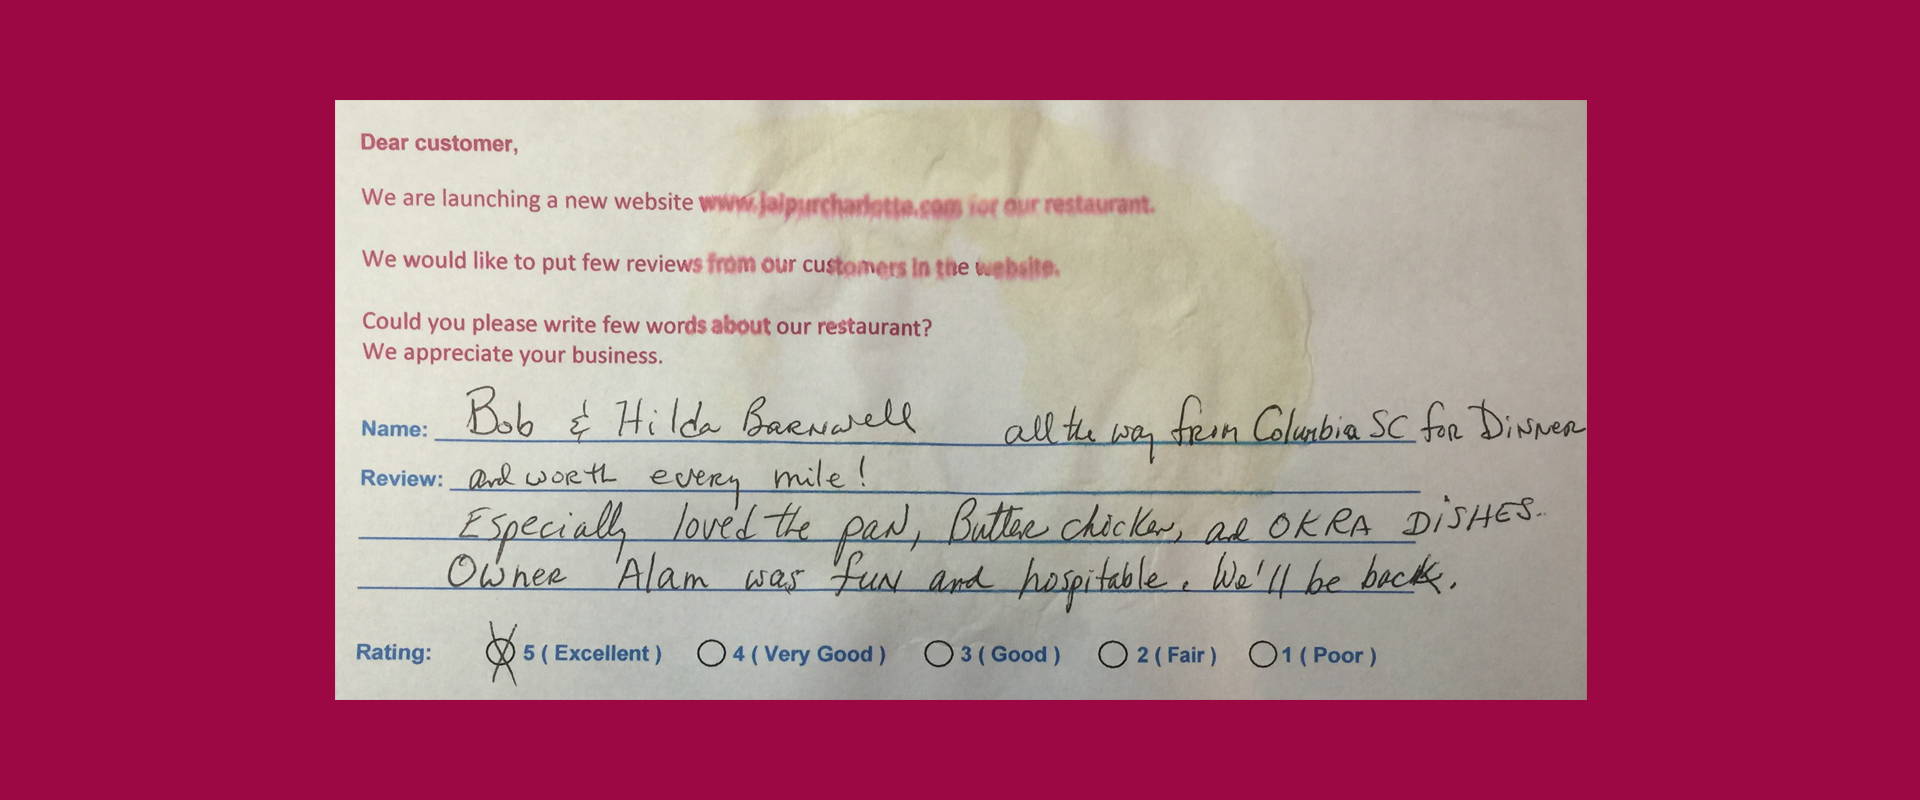 Dear customer,
We are launching a new website www.jaipurcharlotte.com for our restaurant.
We would like to put few reviews from our customers in the website.
Could you please write few words about our restaurant?
We appreciate your business.
Name: Bob & Hilda Barnwell all the way from Columbia SC for Dinner
Review: and worth every mile!
Especially loved the pan, Butter chicken, and OKRA DISHES.
Owner Alam was fun and hospitable. We'll be back.
Rating: 5 ( Excellent ) 4 ( Very Good ) 3 ( Good ) 2 ( Fair ) 1 ( Poor )